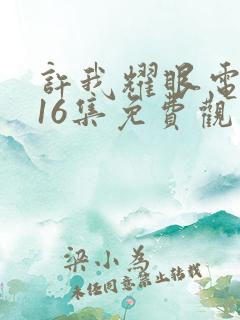 許我耀眼電
16集免費觀
梁小為
未任同意禁止轉載